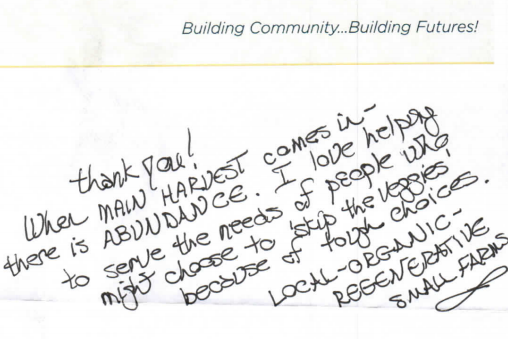 Building Community...Building Futures!
thank you!
When MAIN HARVEST comes in-
there is ABUNDANCE. I love helping
to serve the needs of people who
might choose to 'skip the veggies'
because of tough choices.
LOCAL-ORGANIC-
REGENERATIVE
SMALL FARMS